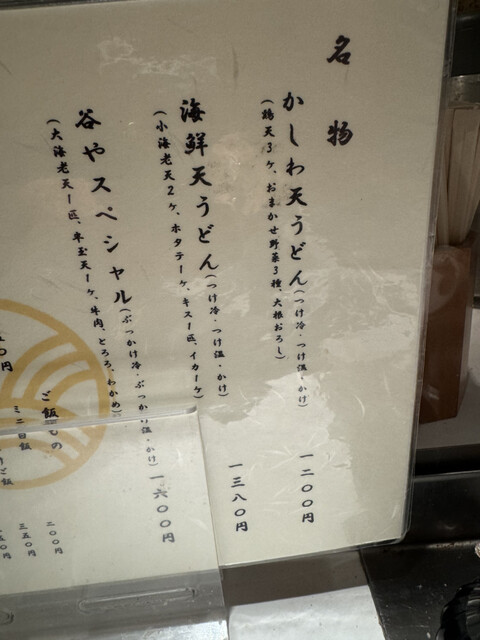 名物
かしわ天うどん(つけ冷・つけ温・かけ) 一二〇〇円
(鶏天3ヶ、おまかせ野菜3種、大根おろし)
海鮮天うどん(つけ冷・つけ温・かけ) 一三八〇円
(小海老天2ヶ、ホタテ一ヶ、キス1匹、イカ一ヶ)
谷やスペシャル(ぶっかけ冷・ぶっかけ温・かけ) 一六〇〇円
(大海老天1匹、半玉天1ヶ、牛肉、とろろ、わかめ)
ご飯もの
ミニ白飯 二〇〇円
三五〇円
五〇円